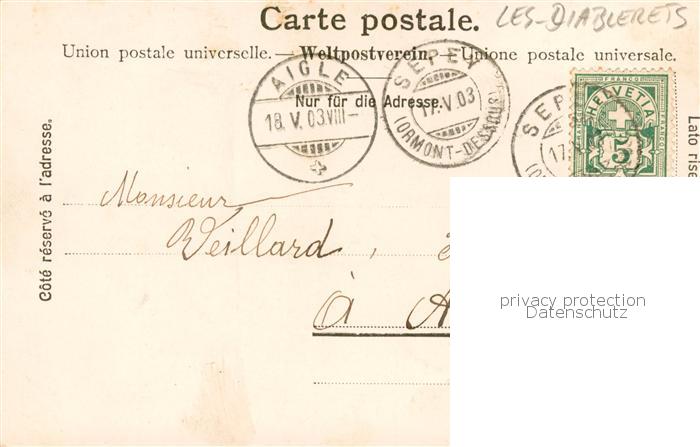 LES-DIABLERETS
Carte postale.
Union postale universelle. — Weltpostverein. — Unione postale universale.
AIGLE
18.V.03.VIII—
SEPEY
17.V.03
(ORMONT-DESSOUS)
SEP
17.V
(O
FRANCO
HELVETIA
5
Nur für die Adresse.
Côté réservé à l'adresse.
Lato rise
Monsieur
Veillard,
à A
privacy protection
Datenschutz